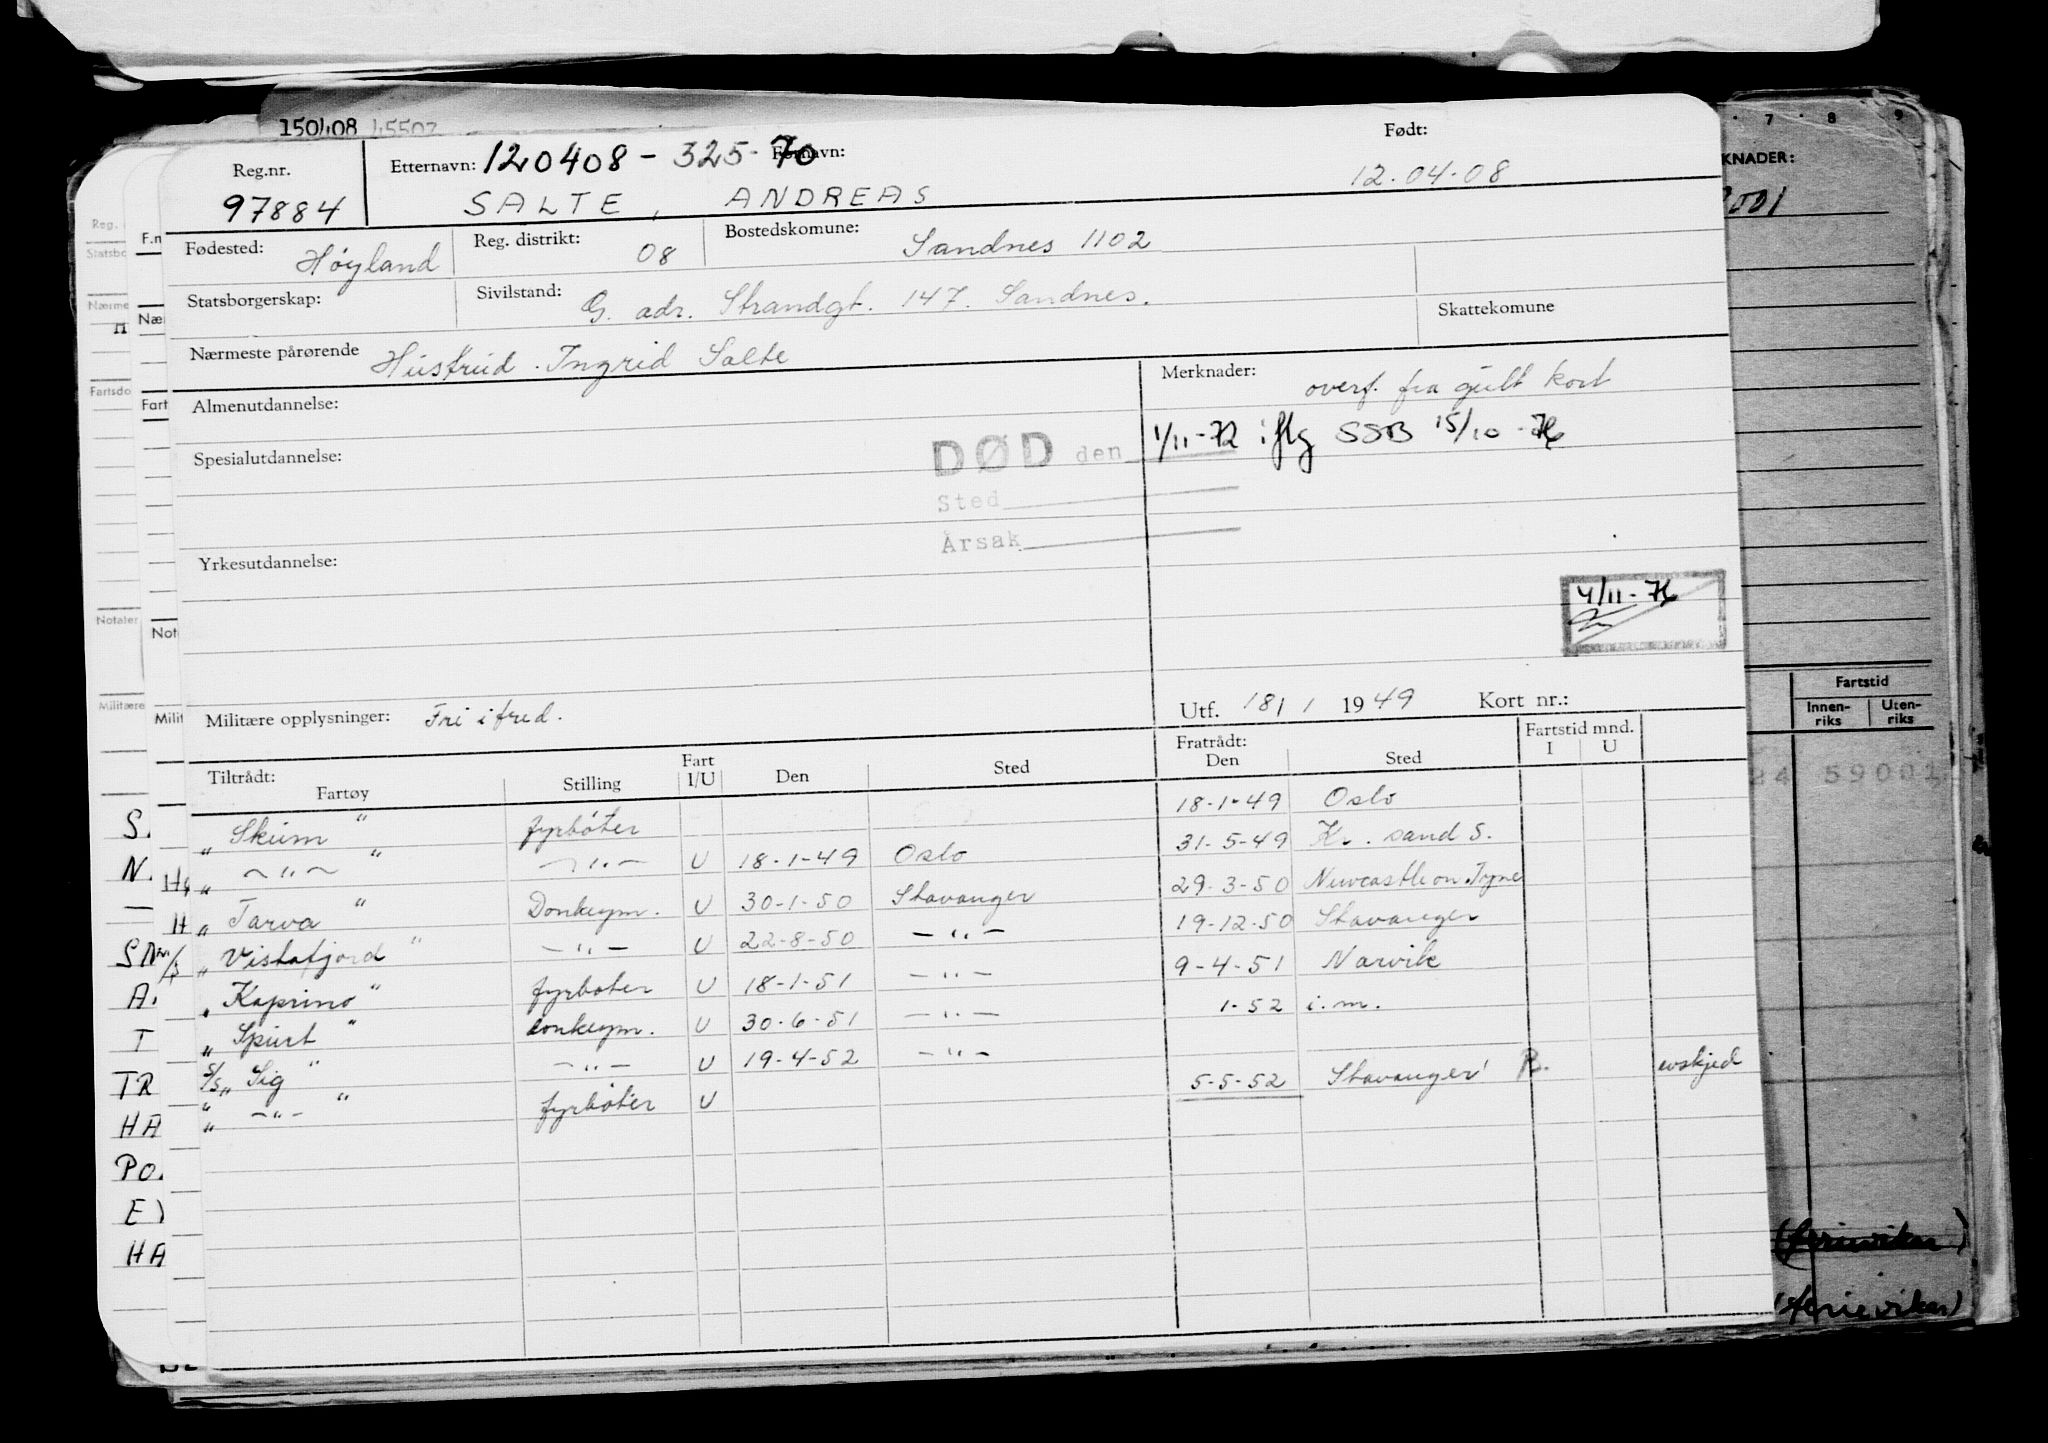 150408 45507
Reg.nr. Etternavn: 120408 - 325-70 Fornavn: Født:
97884 SALTE, ANDREAS 12.04.08
Fødested: Høyland Reg. distrikt: 08 Bostedskomune: Sandnes 1102
Statsborgerskap: Sivilstand: G. adr. Strandgt. 147. Sandnes. Skattekomune
Nærmeste pårørende Hustrud. Ingrid Salte
Almenutdannelse: Merknader: overf. fra gult kort
Spesialutdannelse: DØD den 1/11-72 iflg SSB 15/10-76
Sted
Årsak
Yrkesutdannelse:
4/11-76
Militære opplysninger: Fri i fred. Utf. 18/1 1949 Kort nr.:
Tiltrådt: Fart Fratrådt: Fartstid mnd.
Fartøy Stilling I/U Den Sted Den Sted I U
" Skum " fyrbøter 18-1-49 Oslo
" -"- " -"- U 18-1-49 Oslo 31-5-49 Kr. sand S.
" Tarva " Donkeym. U 30-1-50 Stavanger 29-3-50 Newcastle on Tyne
" Vistafjord " -"- U 22-8-50 -"- 19-12-50 Stavanger
" Kaprino " fyrbøter U 18-1-51 -"- 9-4-51 Narvik
" Spurt " donkeym. U 30-6-51 -"- 1-52 i.m.
S/S " Sig " -"- U 19-4-52 -"-
" -"- " fyrbøter U 5-5-52 Stavanger R.
KNADER:
7 8 9
Fartstid
Innen-riks Uten-riks
24 59001
Reg.
Statsbo
Nærme
Fartsdo
Notater
Militære
F.n
Næ
Fart
Not
Milit
S.
N. H
H
A.
T
TR
HA
PO.
E
HA